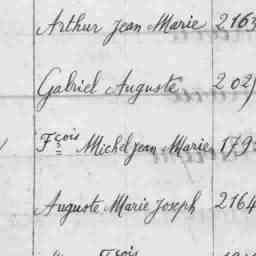 Arthur Jean Marie 2163
Gabriel Auguste 202
Fçois Michel Jean Marie 179
Auguste Marie Joseph 2164
Fçois